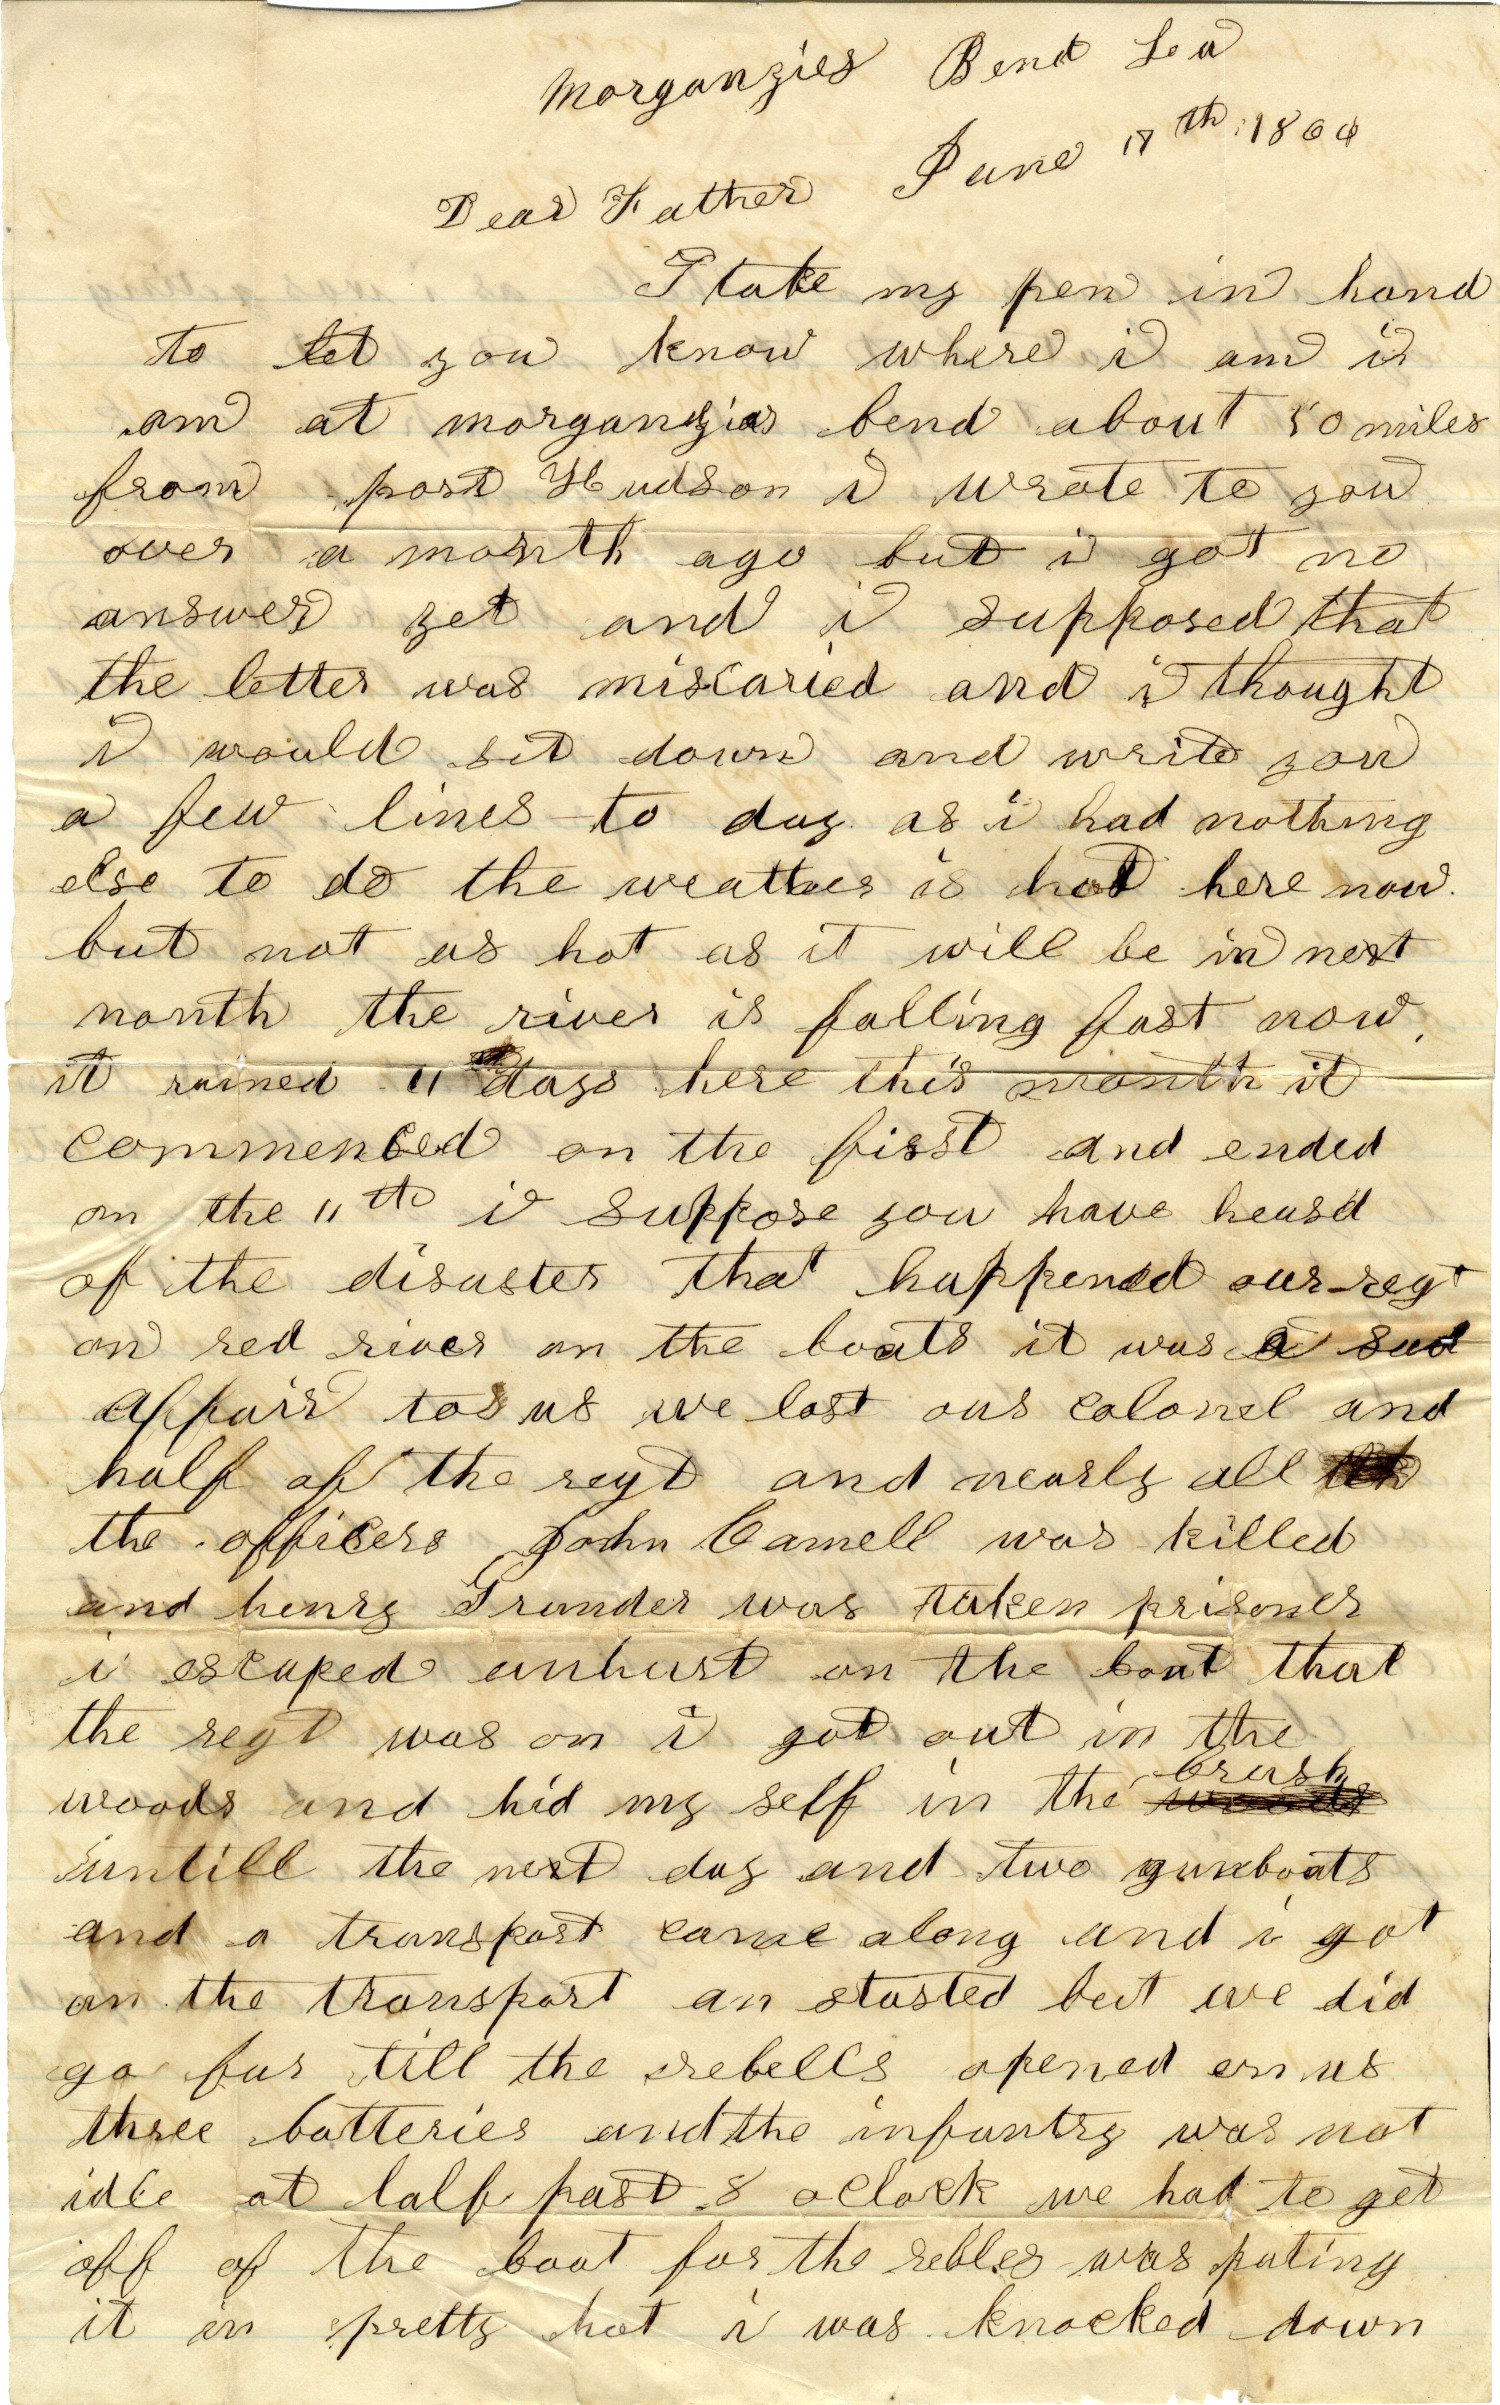 Morganzies Bend La
June 17th 1864
Dear Father
I take my pen in hand
to let you know where i am i
am at morganzias bend about 50 miles
from port Hudson i wrote to you
over a month ago but i got no
answer yet and i supposed that
the letter was miscaried and i thought
i would sit down and write you
a few lines to day as i had nothing
else to do the weather is hot here now
but not as hot as it will be in next
month the river is falling fast now,
it rained 11 days here this month it
commenced on the first and ended
on the 11th i suppose you have heard
of the disaster that happened our regt
on red river on the boats it was a sad
affair to us we lost our colonel and
half of the regt and nearly all
the officers John Camell was killed
and henry Trander was taken prisoner
i escaped unhurt on the boat that
the regt was on i got out in the
woods and hid my self in the brush
untill the next day and two gunboats
and a transport came along and i got
on the transport an started but we did
go far till the rebells opened on us
three batteries and the infantry was not
idle at half past 8 oclock we had to get
off of the boat for the rebles was puting
it in pretty hot i was knocked down